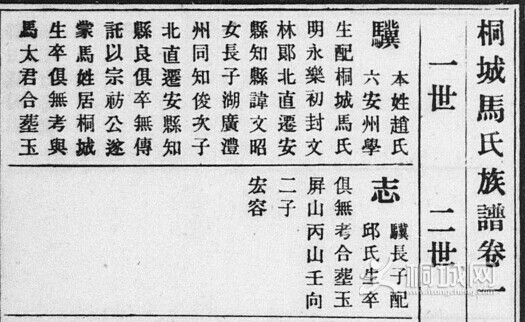 桐城馬氏族譜卷一
一世
二世
驥
本姓趙氏
六安州學
生配桐城馬氏
明永樂初封文
林郎北直遷安
縣知縣諱文昭
女長子湖廣澧
州同知俊次子
北直遷安縣知
縣良俱卒無傳
託以宗祊公遂
蒙馬姓居桐城
生卒俱無考與
馬太君合塟玉
志
驥長子配
邱氏生卒
俱無考合塟玉
屏山丙山壬向
二子
宏容
桐城网
www.tongcheng.com